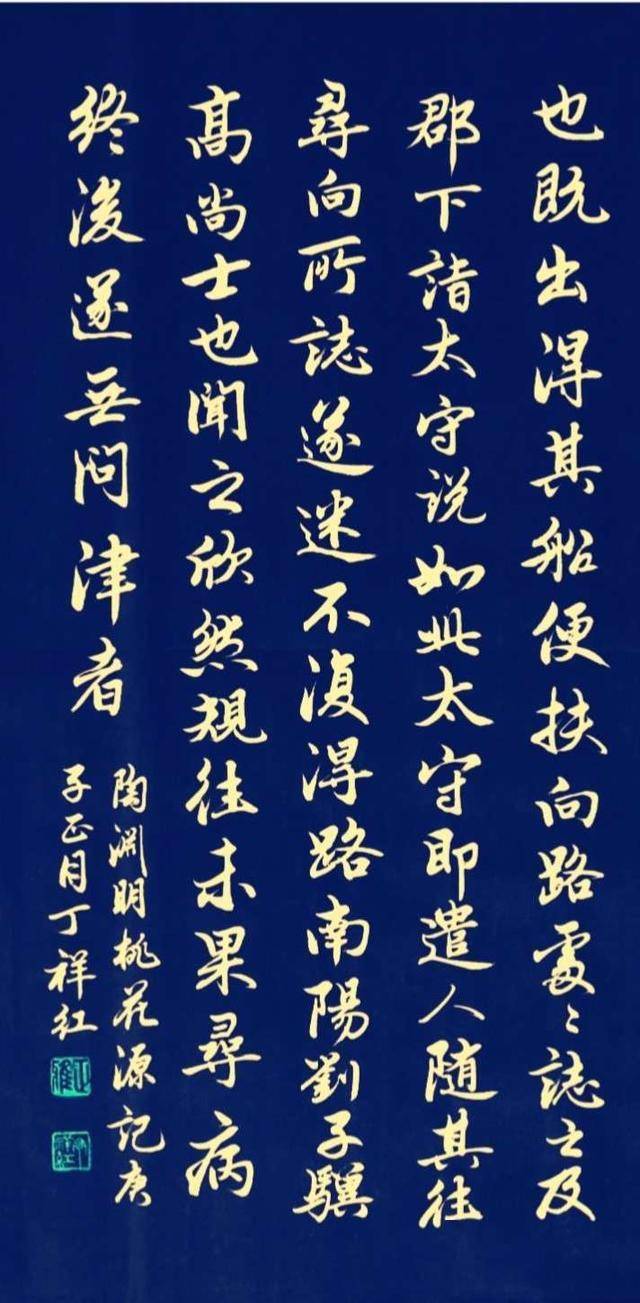 也既出得其船便扶向路處〻誌之及
郡下詣太守说如此太守即遣人随其往
尋向所誌遂迷不復得路南陽劉子驥
高尚士也聞之欣然規往未果尋病
終後遂無問津者
陶淵明桃花源記庚
子正月丁祥红